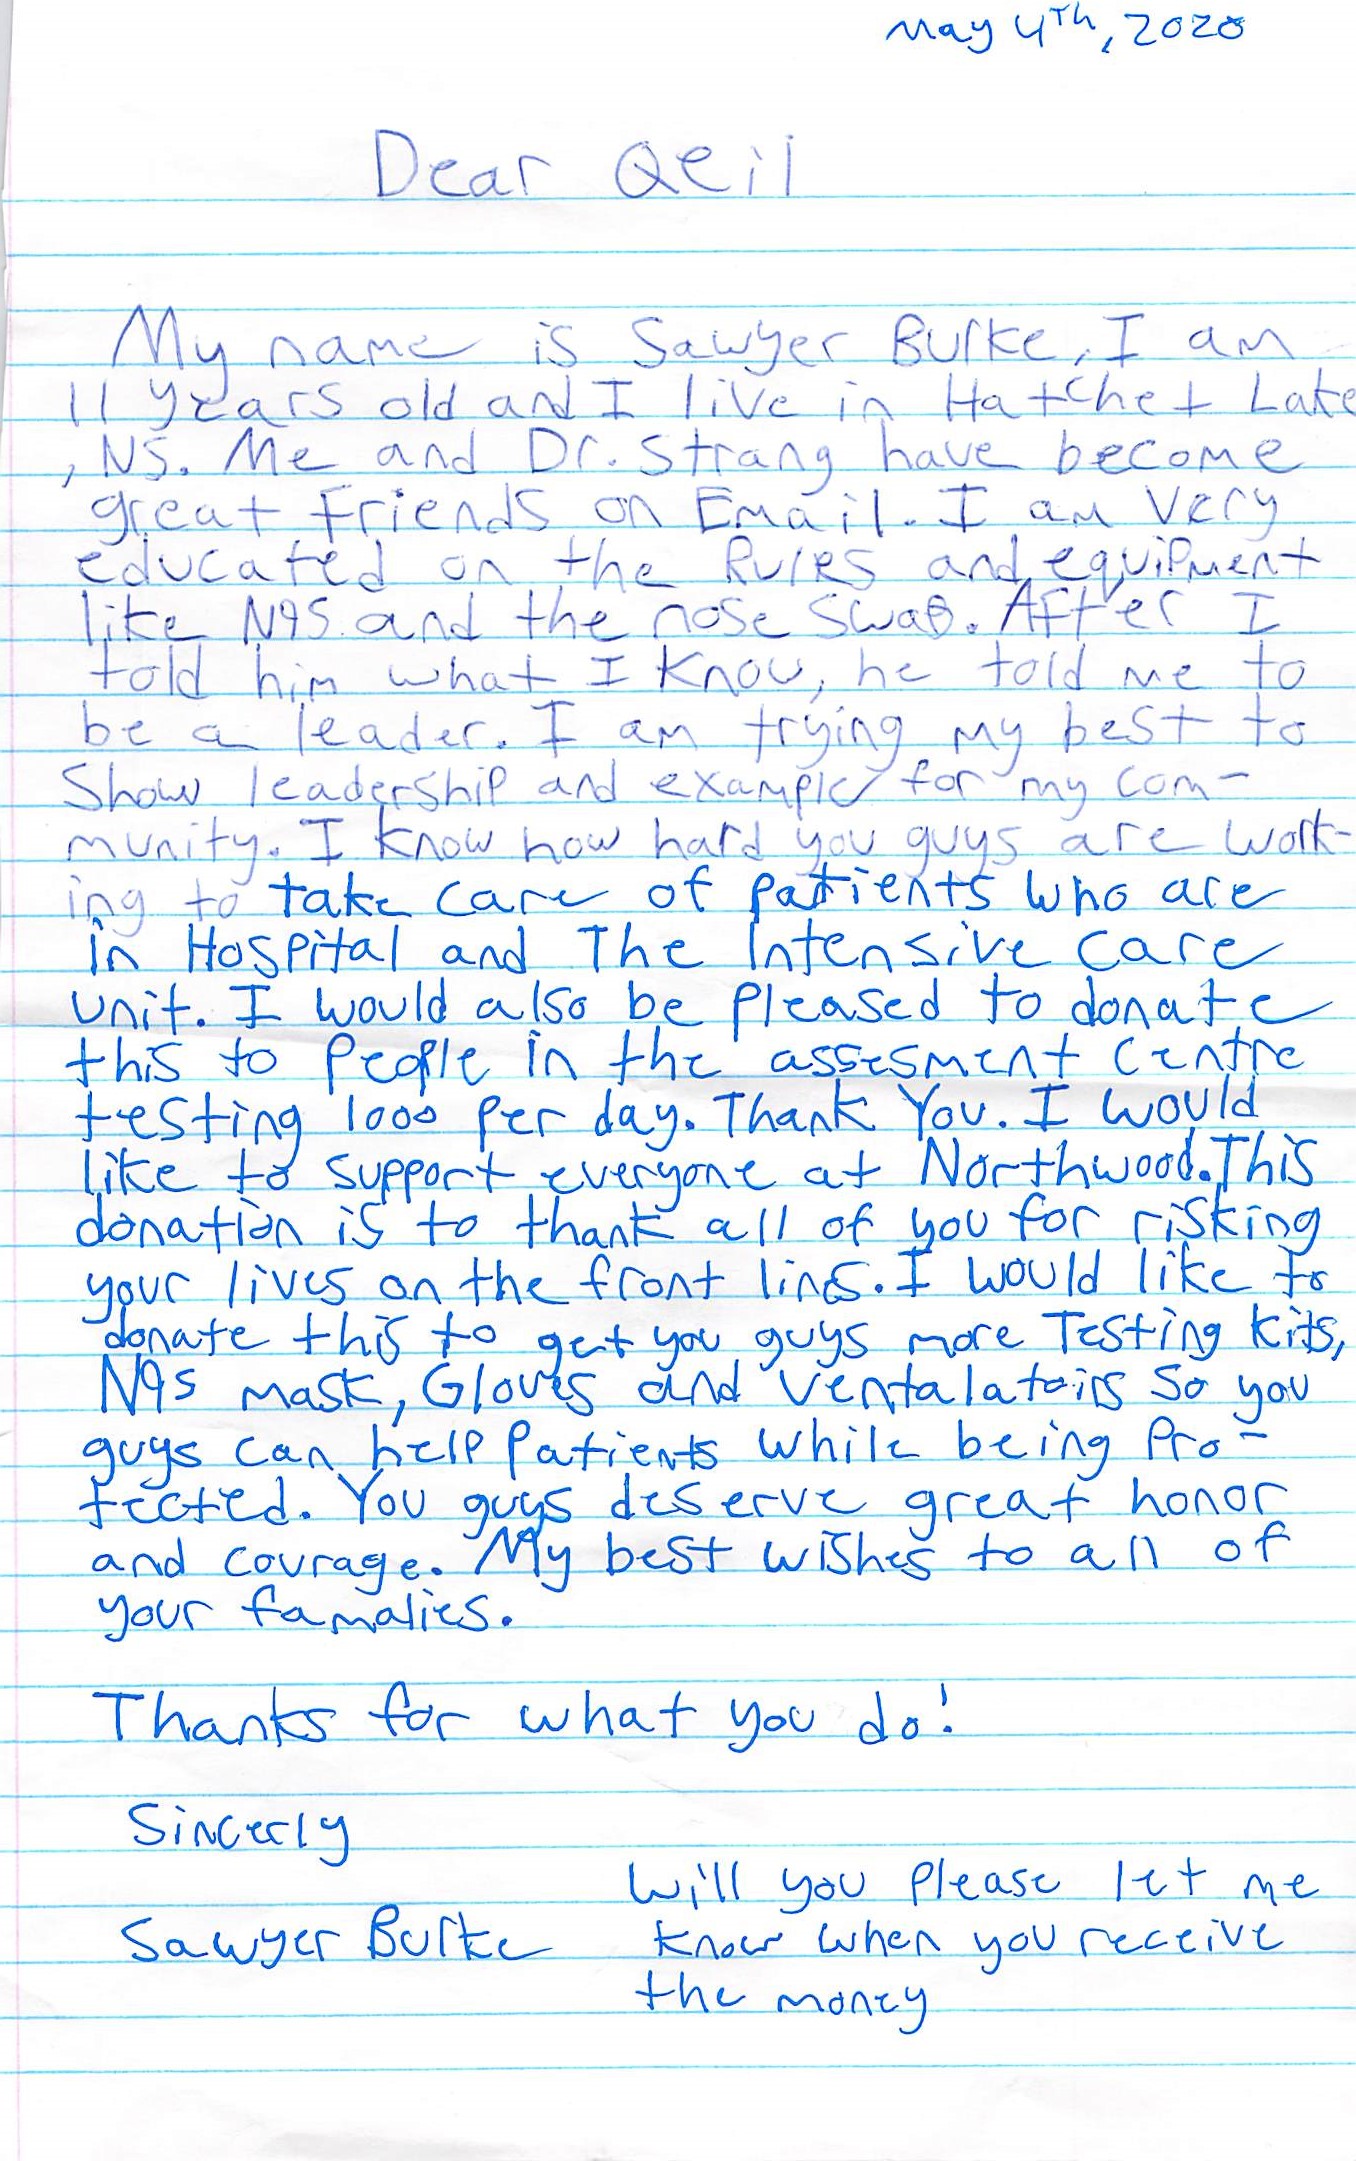 May 4Th, 2020
Dear QEil
My name is Sawyer Burke, I am
11 years old and I live in Hatchet Lake
, NS. Me and Dr. Strang have become
great Friends on Email. I am very
educated on the Rules and equipment
like N95 and the nose swab. After I
told him what I know, he told me to
be a leader. I am trying my best to
Show leadership and example for my com-
munity. I know how hard you guys are work-
ing to take care of patients who are
in Hospital and The Intensive care
unit. I would also be pleased to donate
this to people in the assesment centre
testing 1000 per day. Thank You. I would
like to support everyone at Northwood. This
donation is to thank all of you for risking
your lives on the front lines. I would like to
donate this to get you guys more Testing kits,
N95 mask, Gloves and ventalatoirs so you
guys can help patients while being pro-
tected. You guys deserve great honor
and courage. My best wishes to all of
your famalies.
Thanks for what you do!
Sincerly
Will you please let me
Sawyer Burke know when you receive
the money